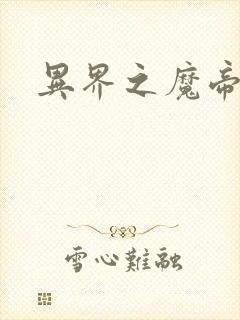 異界之魔帝
雪心難融